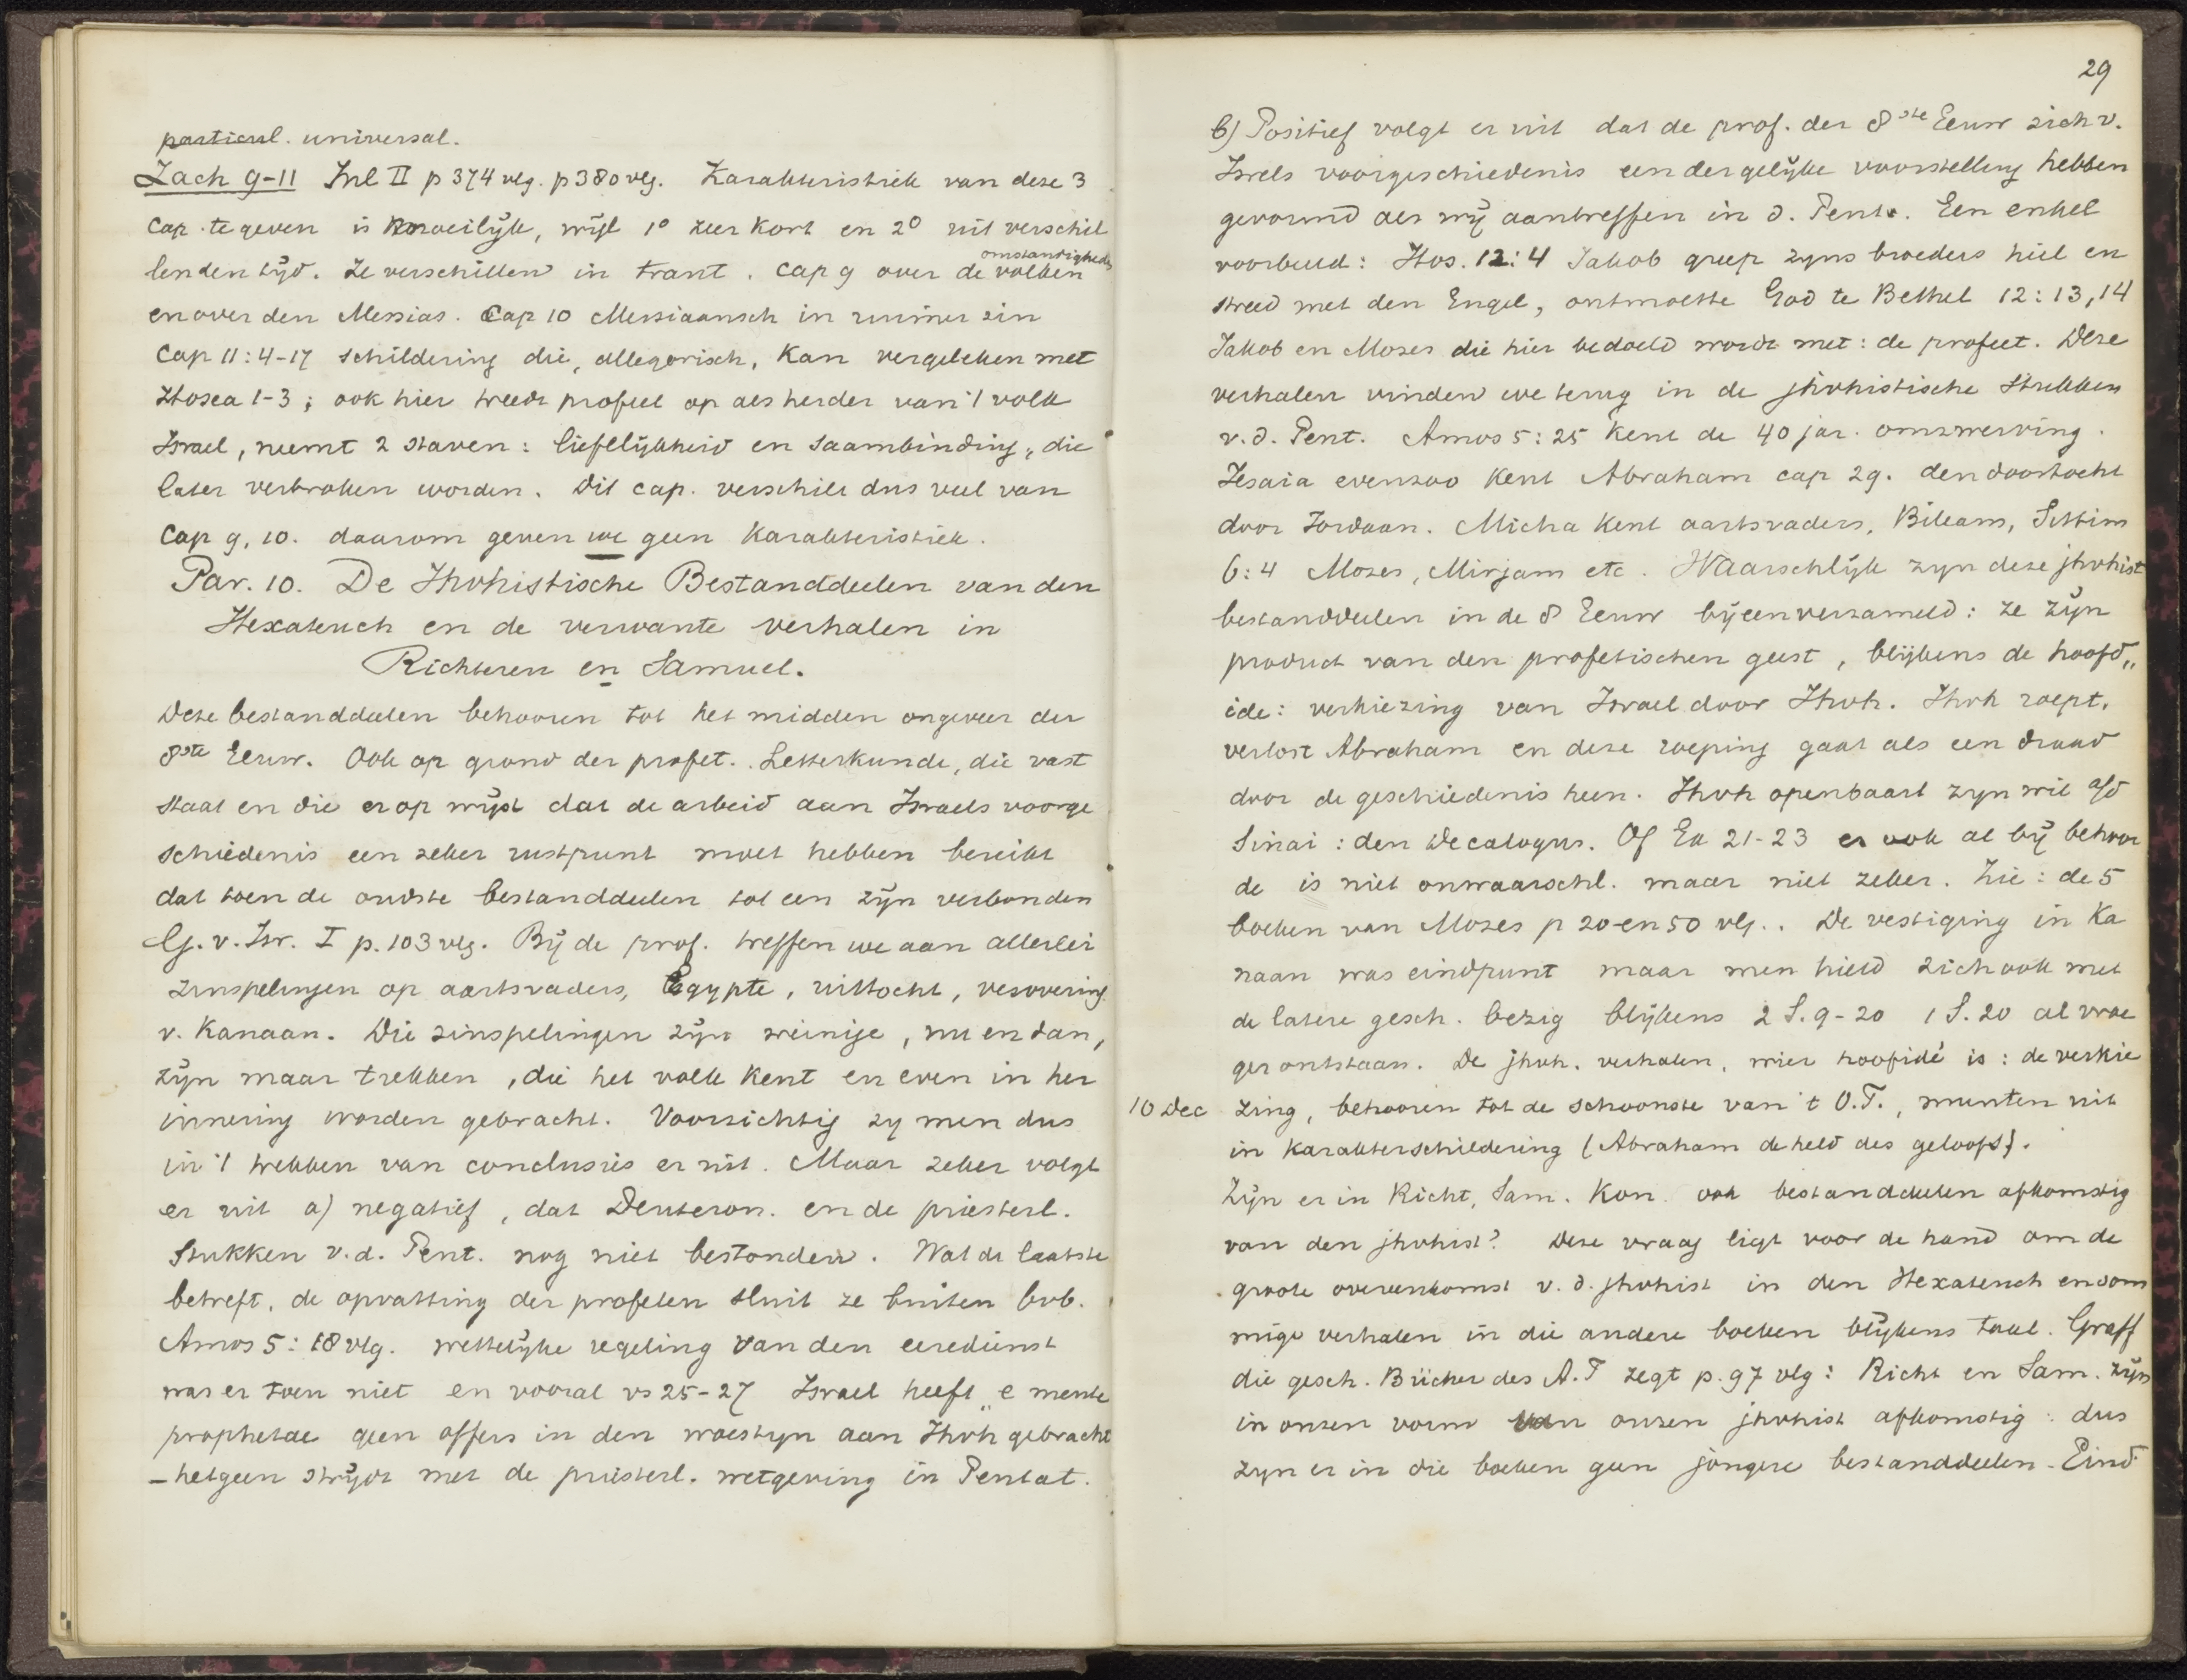 particul. universal.
Zach 9-11 Inl II p 374 vlg. p 380 vlg. Karakteristiek van deze 3
Cap. te geven is moeilijk, wijl 1° zeer kort en 2° uit verschil
lenden tijd. Ze verschillen in trant. Cap 9 over de omstandigheden volken
en over den Messias. Cap 10 Messiaansch in ruimer zin
Cap 11:4-17 schildering die, allegorisch, kan vergeleken met
Hosea 1-3; ook hier treedt profeet op als herder van 't volk
Israel, neemt 2 staven: lieflijkheid en saambinding, die
later verbroken worden. Dit cap. verschilt dus veel van
Cap 9, 10. daarom geven we geen karakteristiek.
Par. 10. De Jhvhistische Bestanddeelen van den
Hexateuch en de verwante verhalen in
Richteren en Samuel.
Deze bestanddeelen behooren tot het midden ongeveer der
8ste Eeuw. Ook op grond der profet. Letterkunde, die vast
staat en die er op wijst dat de arbeid aan Israels voorge
schiedenis een zeker rustpunt moet hebben bereikt
dat toen de oudste bestanddeelen tot een zijn verbonden
G. v. Isr. I p. 103 vlg. Bij de prof. treffen we aan allerlei
zinspelingen op aartsvaders, Egypte, uittocht, verovering
v. Kanaan. Die zinspelingen zijn weinige, nu en dan,
zijn maar trekken, die het volk kent en even in her
innering worden gebracht. Voorzichtig zij men dus
in 't trekken van conclusies er uit. Maar zeker volgt
er uit a) negatief, dat Deuteron. en de priesterl.
Stukken v.d. Pent. nog niet bestonden. Wat de laatste
betreft, de opvatting der profeten sluit ze buiten bvb.
Amos 5:18 vlg. wettelijke regeling van den eeredienst
was er toen niet en vooral vs 25-27 Israel heeft „e mente
prophetae geen offers in den woestyn aan Jhvh gebracht
- hetgeen strijdt met de priesterl. wetgeving in Pentat.
29
b) Positief volgt er uit dat de prof. der 8ste Eeuw zich v.
Isrels voorgeschiedenis een dergelijke voorstelling hebben
gevormd als wij aantreffen in d. Pent. Een enkel
voorbeeld: Hos. 12:4 Jakob greep zyns broeders hiel en
streed met den Engel, ontmoette God te Bethel 12:13,14
Jakob en Mozes die hier bedoeld wordt met: de profeet. Deze
verhalen vinden we terug in de jhvhistische Stukken
v.d. Pent. Amos 5:25 kent de 40 jar. omzwerving.
Jesaia evenzoo kent Abraham cap 29. den doortocht
door Jordaan. Micha kent aartsvaders, Bileam, Sittim
6:4 Mozes, Mirjam etc. Waarschlijk zyn deze jhvhist
bestanddeelen in de 8 Eeuw bijeenverzameld: ze zijn
product van den profetischen geest, blijkens de hoofd„
ide: verkiezing van Israel door Jhvh. Jhvh roept,
verlost Abraham en deze roeping gaat als een draad
door de geschiedenis heen. Jhvh openbaart zyn wil a/d
Sinai: den Decalogus. Of Ex 21-23 er ook al bij behoor
de is niet onwaarschl. maar niet zeker. Zie: de 5
boeken van Mozes p 20 en 50 vlg.. De vestiging in Ka
naan was eindpunt maar men hield zich ook met
de latere gesch. bezig blijkens 2 S. 9-20 1 S. 20 al vroe
ger ontstaan. De jhvh. verhalen, wier hoofidé is: de verkie
10 Dec zing, behooren tot de schoonste van 't O.T., munten uit
in karakterschildering (Abraham de held des geloofs).
Zijn er in Richt, Sam. Kon. ook bestanddeelen afkomstig
van den jhvhist? Deze vraag ligt voor de hand om de
groote overeenkomst v.d. jhvhist in den Hexateuch en som
mige verhalen in die andere boeken blijkens taal. Graff
die gesch. Bücher des A.T zegt p. 97 vlg: Richt en Sam. zijn
in onzen vorm van onzen jhvhist afkomstig: dus
zyn er in die boeken geen jongere bestanddeelen. Eind